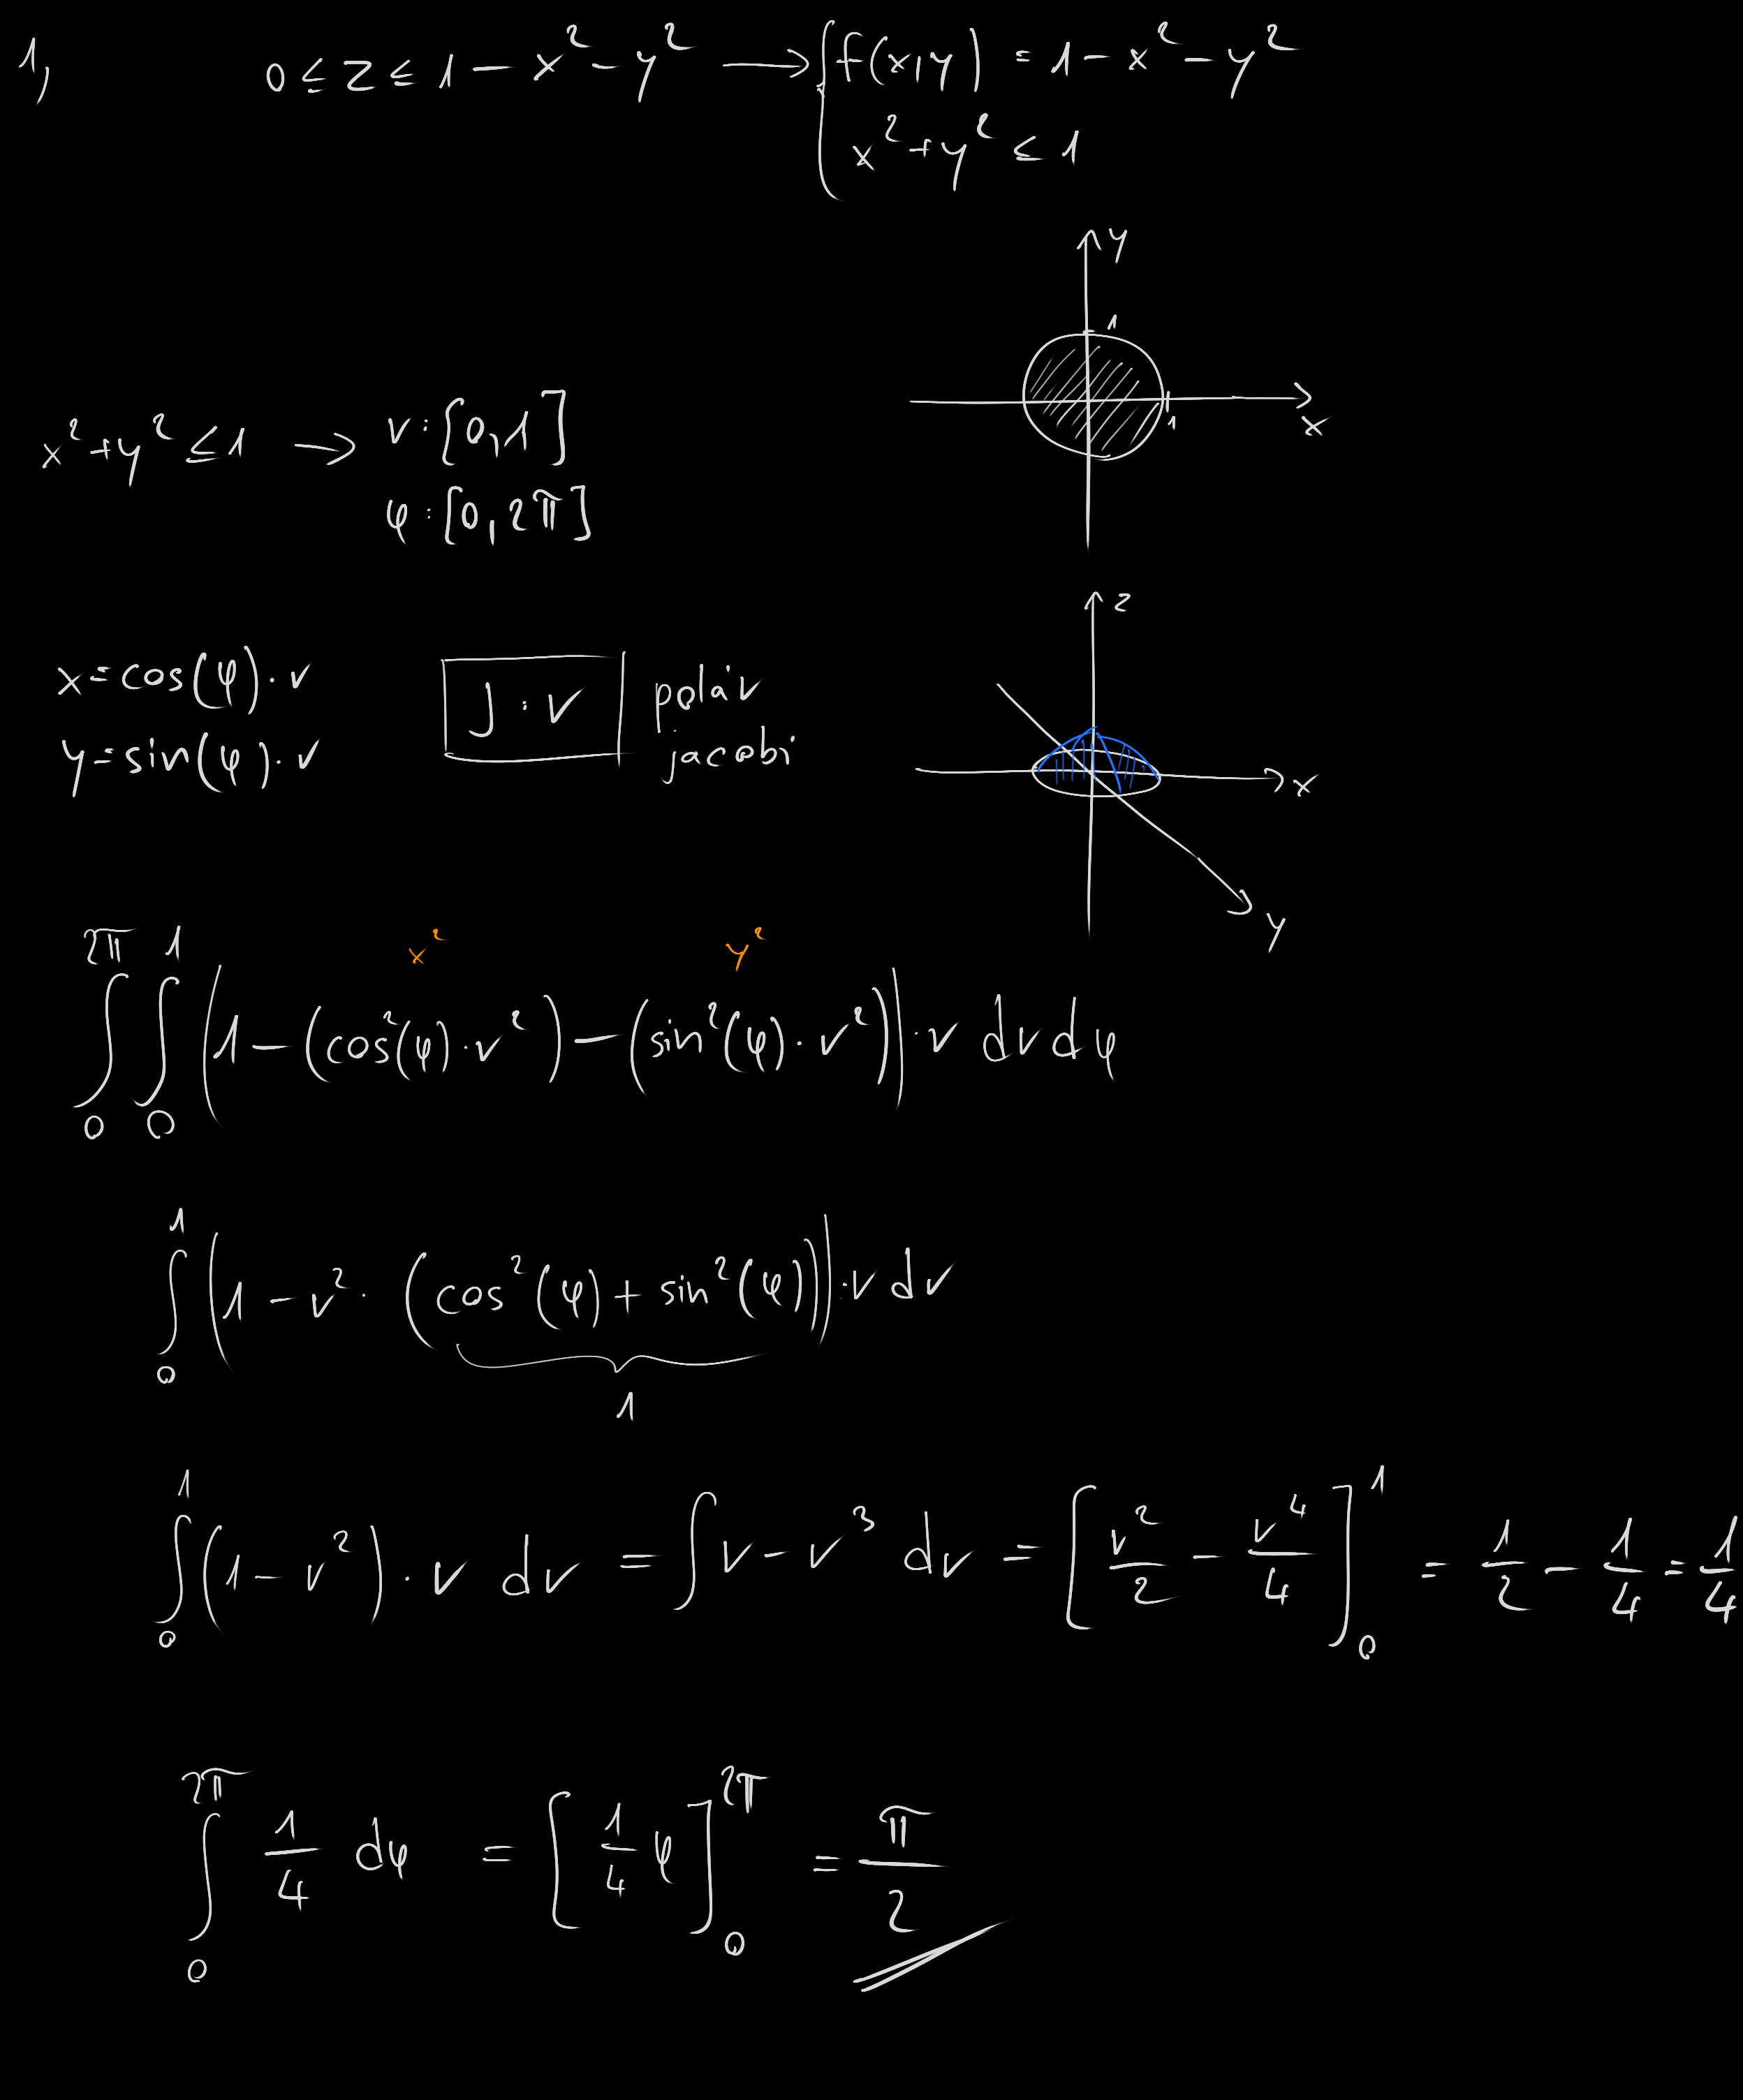 1,
0 ≤ z ≤ 1 − x² − y² → { f(x,y) = 1 − x² − y²
x² + y² ≤ 1
y
1
1
x
x² + y² ≤ 1 → r : [0,1]
φ : [0, 2π]
z
x
y
x = cos(φ) · r
y = sin(φ) · r
J : r
polár
jacobi
x² y²
∫₀^{2π} ∫₀^1 (1 − (cos²(φ) · r²) − (sin²(φ) · r²)) · r dr dφ
∫₀^1 (1 − r² · (cos²(φ) + sin²(φ))) · r dr
1
∫₀^1 (1 − r²) · r dr = ∫ r − r³ dr = [r²/2 − r⁴/4]₀^1 = 1/2 − 1/4 = 1/4
∫₀^{2π} 1/4 dφ = [1/4 φ]₀^{2π} = π/2